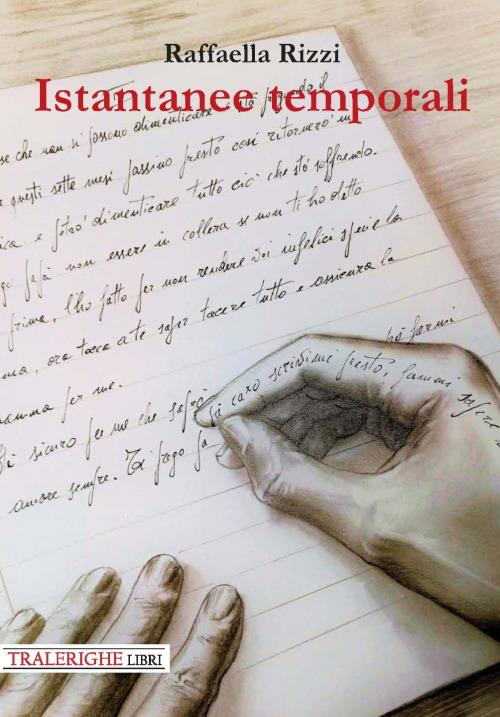 Raffaella Rizzi
Istantanee temporali
se che non si possono dimenticare
questi sette mesi passino presto così ritornerò in
e potrò dimenticare tutto ciò che stò soffrendo.
papà non essere in collera se non ti ho detto
prima, l'ho fatto per non rendere voi infelici
ma, ora tocca a te saper tacere tutto e assicura la
mamma per me.
sicuro per me che saprò
caro scrivimi presto, fammi sapere
amore sempre. Ti prego
TRALERIGHE LIBRI